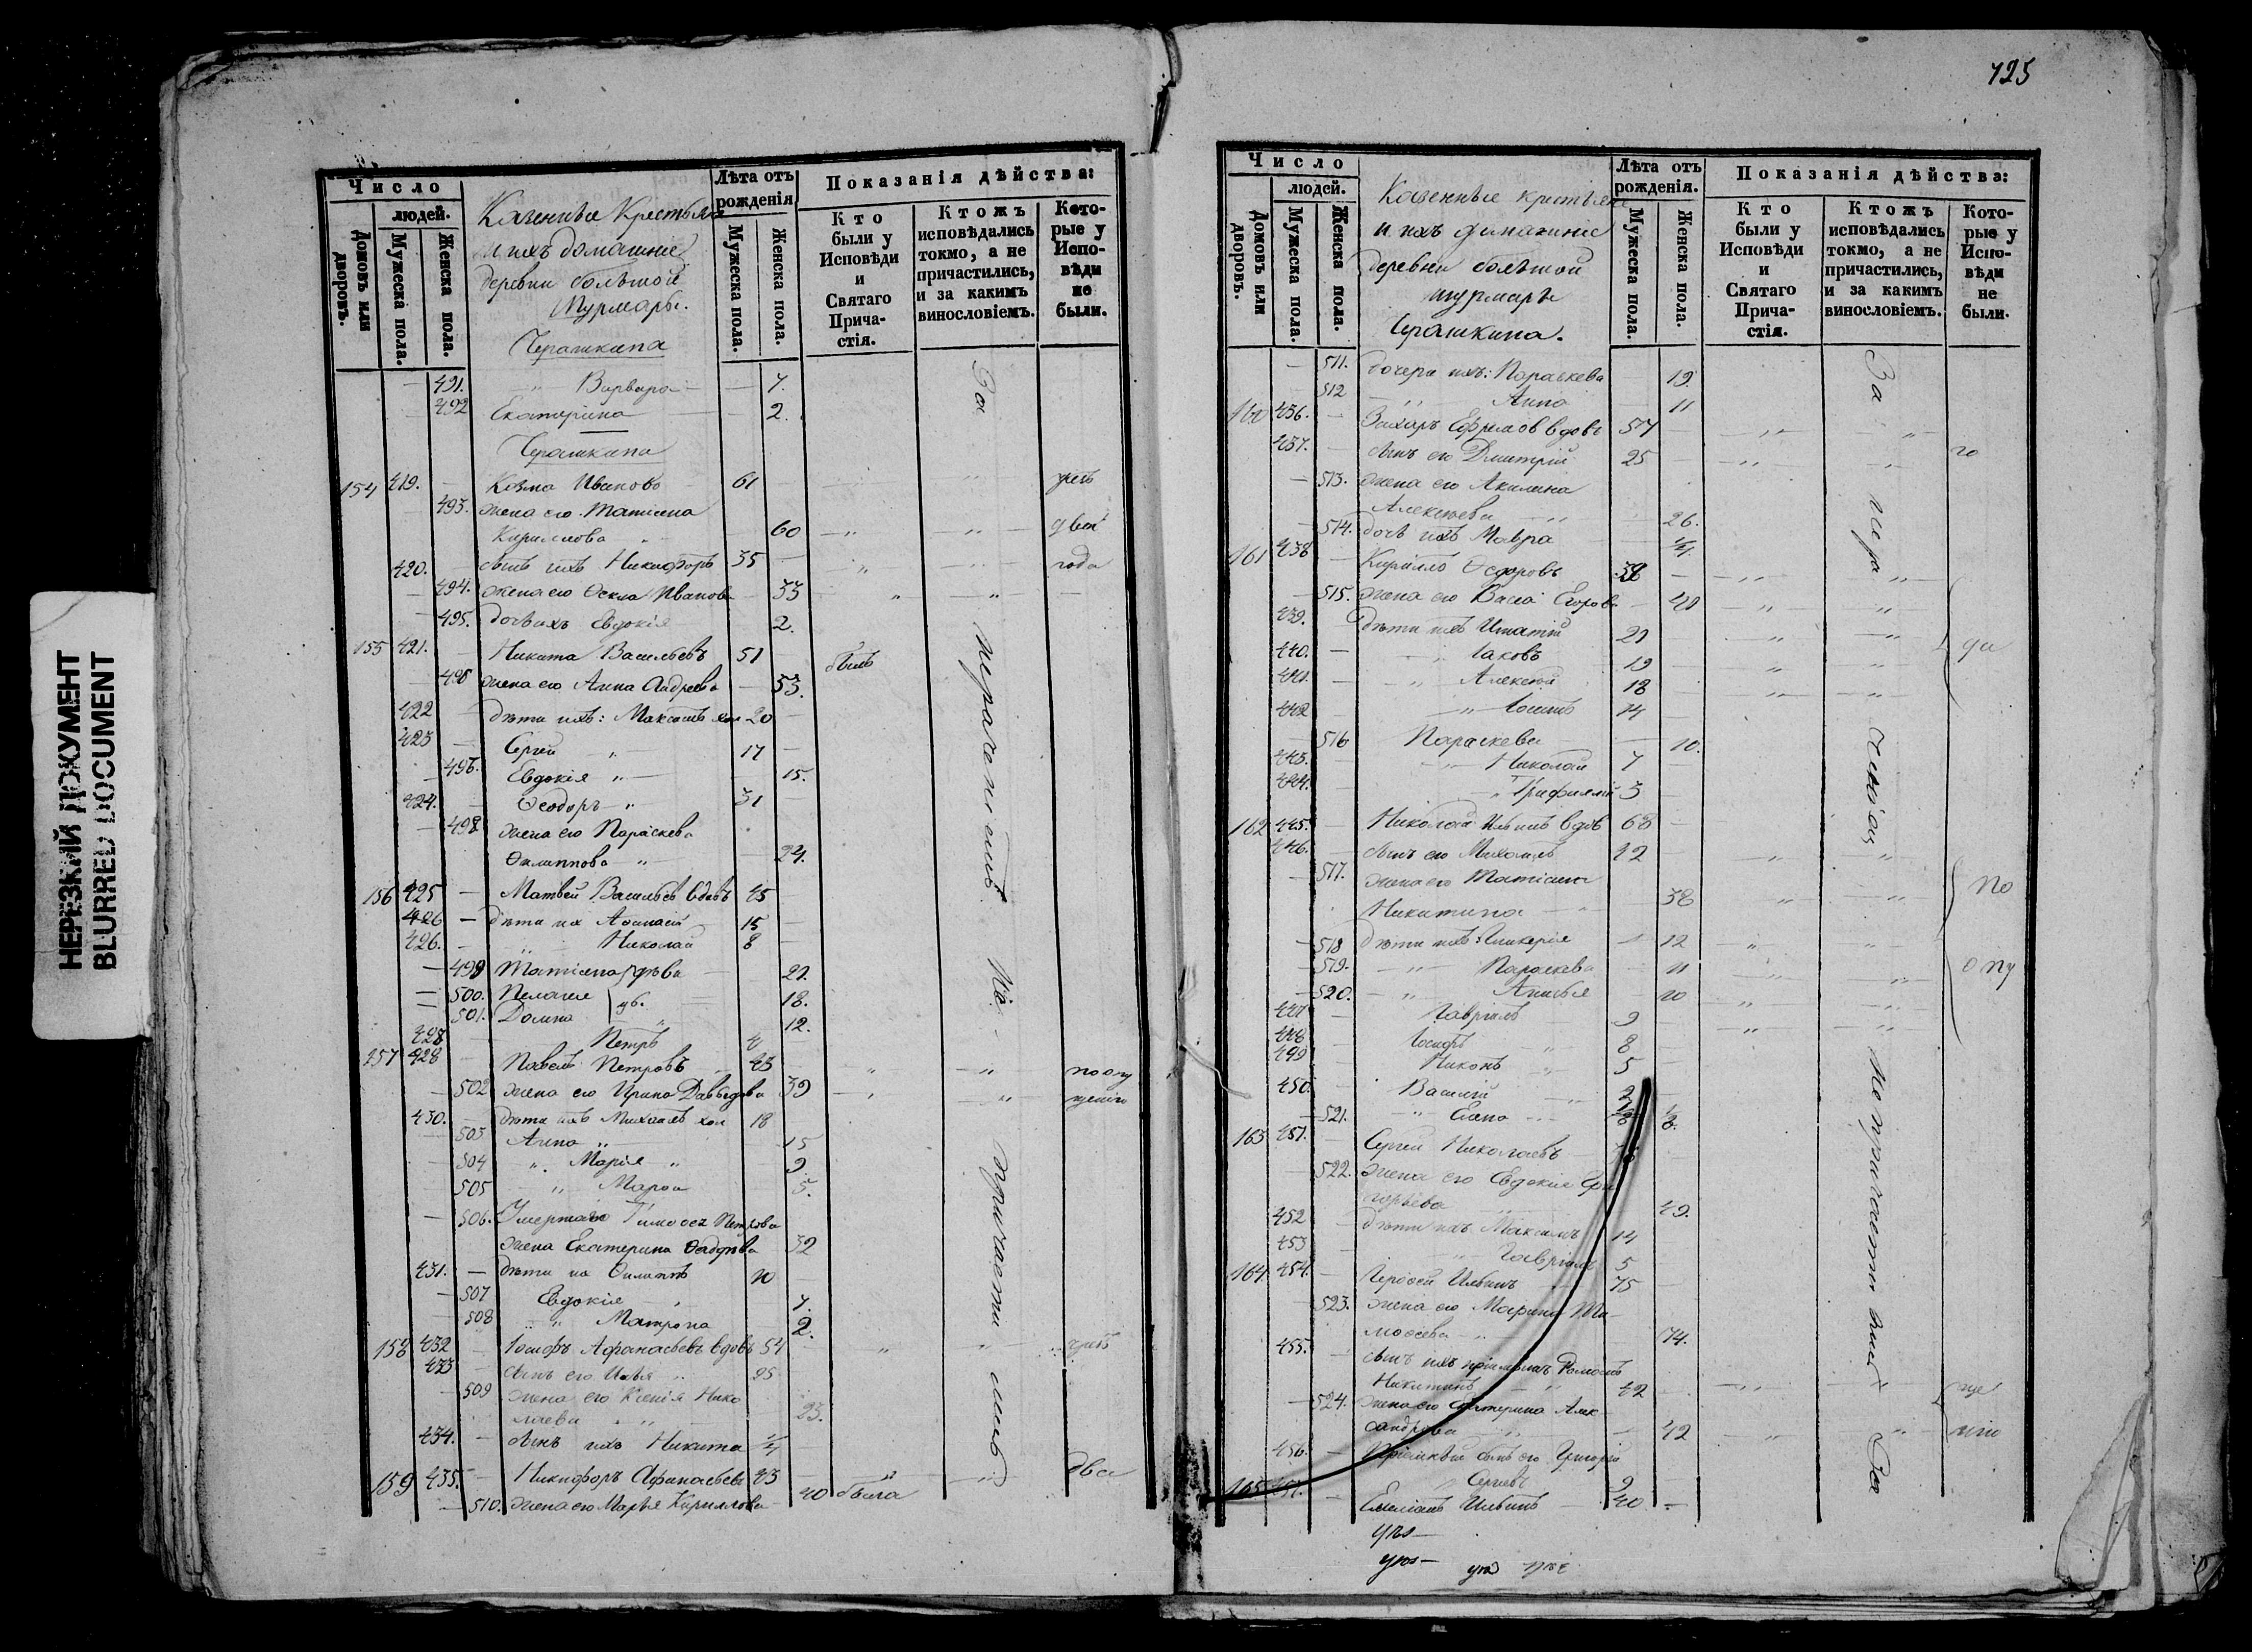 НЕРЕЗКИЙ ДОКУМЕНТ
BLURRED DOCUMENT
Число
людей.
Домовъ или дворовъ.
Мужеска пола.
Женска пола.
Казенные Крестьяне
и ихъ домашние
деревни большой
Шурмары.
Черашкина
Лѣта отъ рожденія
Мужеска пола.
Женска пола.
Показанія дѣйства:
Кто были у Исповѣди и Святаго Причастія.
Ктожъ исповѣдались токмо, а не причастились, и за какимъ винословіемъ.
Которые у Исповѣди не были.
491. " Варвара — 7.
492 Екатерина — 2.
Черашкина
154 419. Козма Ивановъ 61
493. жена его Татiана
Кириллова 60
420. сынъ ихъ Никифоръ 35 года
494. жена его Ѳекла Иванова 33
495. дочь ихъ Евдокiя 2.
155 421. Никита Васильевъ 51 былъ
496 жена его Анна Андреева 53.
422 дѣти ихъ: Максимъ хол 20
423 Сергей " 17
496. Евдокiя " 15.
424. Ѳеодоръ " 31
498 жена его Параскева
Филиппова " 24.
156 425 Матвей Васильевъ вдовъ 45
426 дѣти их Аѳанасiй 15
426. Николай 8
499 Татiана дѣва 21.
500. Пелагея 18.
501. Домна 12.
428 Петръ 4
157 428 Павелъ Петровъ 43
502 жена его Ирина Давыдова 39
430. дѣти ихъ Михаилъ хол 18
503 Анна " 15
504 " Марiя " 9
505 " Марѳа 5.
506. Умершаго Тимоѳея Петрова
жена Екатерина Ѳадѣева 32
431. дѣти их Филиппъ 10
507 Евдокiя 7.
508 " Матрона 2.
158 432 Iосифъ Афанасьевъ вдовъ 54
433 сынъ его Илья 25
509 жена его Ксенiя Нико
лаева " 23.
434. сынъ ихъ Никита 1/4
159 435. Никифоръ Афанасьевъ 43 два
510. жена его Марья Кириллова 40 была
За
нерачениемъ
Не
причастились
125
Число
людей.
Домовъ или дворовъ.
Мужеска пола.
Женска пола.
Казенные крестьяне
и ихъ домашние
деревни большой
шурмары
Черашкина.
Лѣта отъ рожденія.
Мужеска пола.
Женска пола.
Показанія дѣйства:
Кто были у Исповѣди и Святаго Причастія.
Ктожъ исповѣдались токмо, а не причастились, и за какимъ винословіемъ.
Которые у Исповѣди не были.
511. дочери ихъ: Параскева 19.
512 Анна 11
160 436. Захаръ Ефимовъ вдовъ 57
437. сынъ его Дмитрiй 25 го
513. жена его Акилина
Алексѣева 26.
514. дочь ихъ Мавра 1/4.
161 438 Кирилло Ѳедоровъ 38
515. жена его Васса Егорова 40
439. дѣти ихъ Игнатiй 21
440. " Iаковъ 19
441. " Алексѣй 18
442 " Iосифъ 14
516 Параскева 10.
443. " Николай 7
444. " Трифилiй 3
162 445. Николай Ильинъ вдовъ 68
446. сынъ его Михаилъ 42
517. жена его Татiана
Никитина 38
518 дѣти ихъ: Гликерiя 12
519. " Параскева 11
520. " Анисья 10
447 Гаврилъ 9
448 Iосифъ 8
449 Никонъ 5
450. Василiй 2
521. " Елена
163 451. Сергей Николаевъ
522. жена его Евдокiя Гри
горьева 49.
452 дѣти ихъ Максимъ 14
453 " Гаврiилъ 5
164 454. Терѳей Ильинъ 75
523. жена его Марина Ти-
моѳеева 74.
455. сынъ ихъ прiемышъ
Никитинъ 42
524. жена его Екатерина Алек
сандрова 42
456. Прiемный сынъ его Григорiй
Сергеевъ 9
165 457. Емелiанъ Ильинъ 40
За
нера
ченiем
Не причастились
За
да
по
опу
ще
нiю